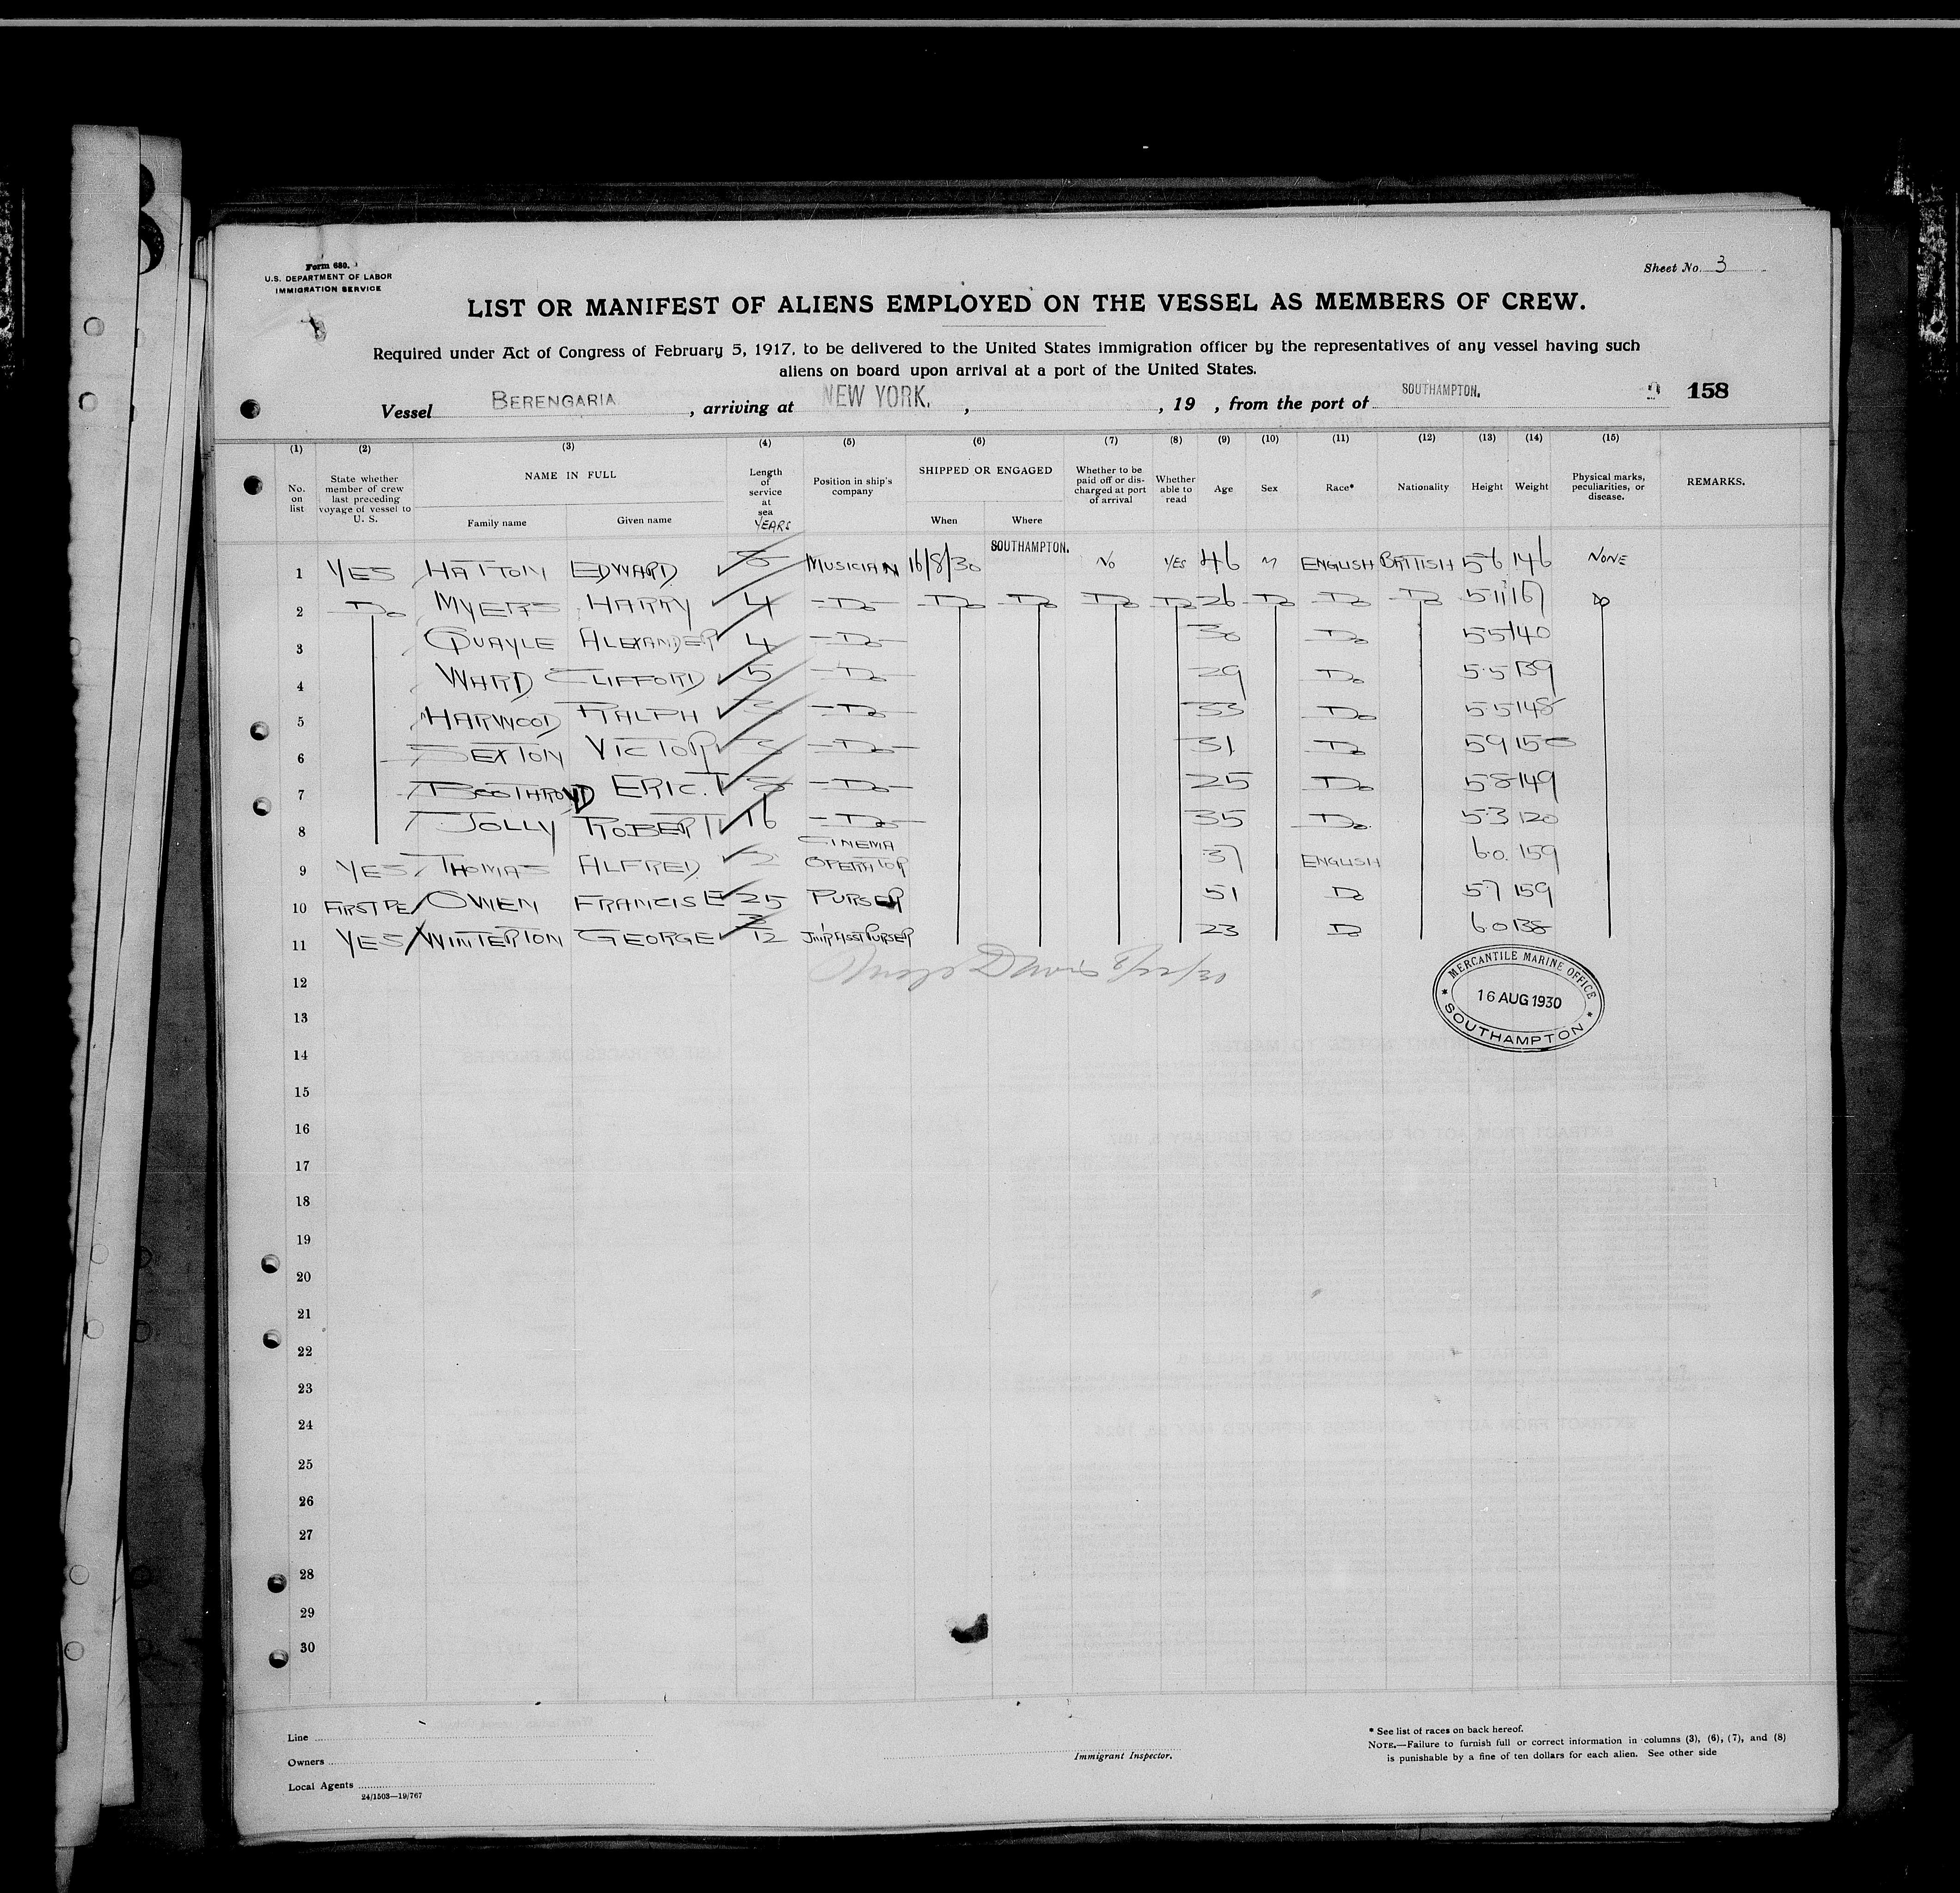 Form 680.
U.S. DEPARTMENT OF LABOR
IMMIGRATION SERVICE
Sheet No. 3
LIST OR MANIFEST OF ALIENS EMPLOYED ON THE VESSEL AS MEMBERS OF CREW.
Required under Act of Congress of February 5, 1917, to be delivered to the United States immigration officer by the representatives of any vessel having such
aliens on board upon arrival at a port of the United States.
Vessel BERENGARIA, arriving at NEW YORK. , , 19 , from the port of SOUTHAMPTON. 158
(1) (2) (3) (4) (5) (6) (7) (8) (9) (10) (11) (12) (13) (14) (15)
No. on list State whether member of crew last preceding voyage of vessel to U. S. NAME IN FULL Family name Given name Length of service at sea YEARS Position in ship's company SHIPPED OR ENGAGED When Where Whether to be paid off or discharged at port of arrival Whether able to read Age Sex Race* Nationality Height Weight Physical marks, peculiarities, or disease. REMARKS.
1 YES HATTON EDWARD MUSICIAN 16/8/30 SOUTHAMPTON. NO YES 46 M ENGLISH BRITISH 5 6 146 NONE
2 Do MYERS HARRY 4 Do Do Do Do Do 26 Do Do Do 5 11 167 Do
3 QUAYLE ALEXANDER 4 Do 30 Do 5 5 140
4 WARD CLIFFORD 5 Do 29 Do 5.5 139
5 HARWOOD RALPH 3 Do 33 Do 5 5 148
6 SEXTON VICTOR 3 Do 31 Do 5 9 150
7 BOOTHROYD ERIC. T Do 25 Do 5 8 149
8 JOLLY ROBERT 16 Do 35 Do. 5.3 120
9 YES THOMAS ALFRED 2 CINEMA OPERATOR 37 ENGLISH 6.0. 159
10 OWEN FRANCIS E 25 PURSER 51 Do 5.7 159
11 YES WINTERTON GEORGE 3/12 JNR ASST PURSER 23 Do 6 0 138
12
13
14
15
16
17
18
19
20
21
22
23
24
25
26
27
28
29
30
MERCANTILE MARINE OFFICE
16 AUG 1930
SOUTHAMPTON
Line
Owners
Local Agents
24/1503—19/767
Immigrant Inspector.
* See list of races on back hereof.
NOTE.—Failure to furnish full or correct information in columns (3), (6), (7), and (8)
is punishable by a fine of ten dollars for each alien. See other side